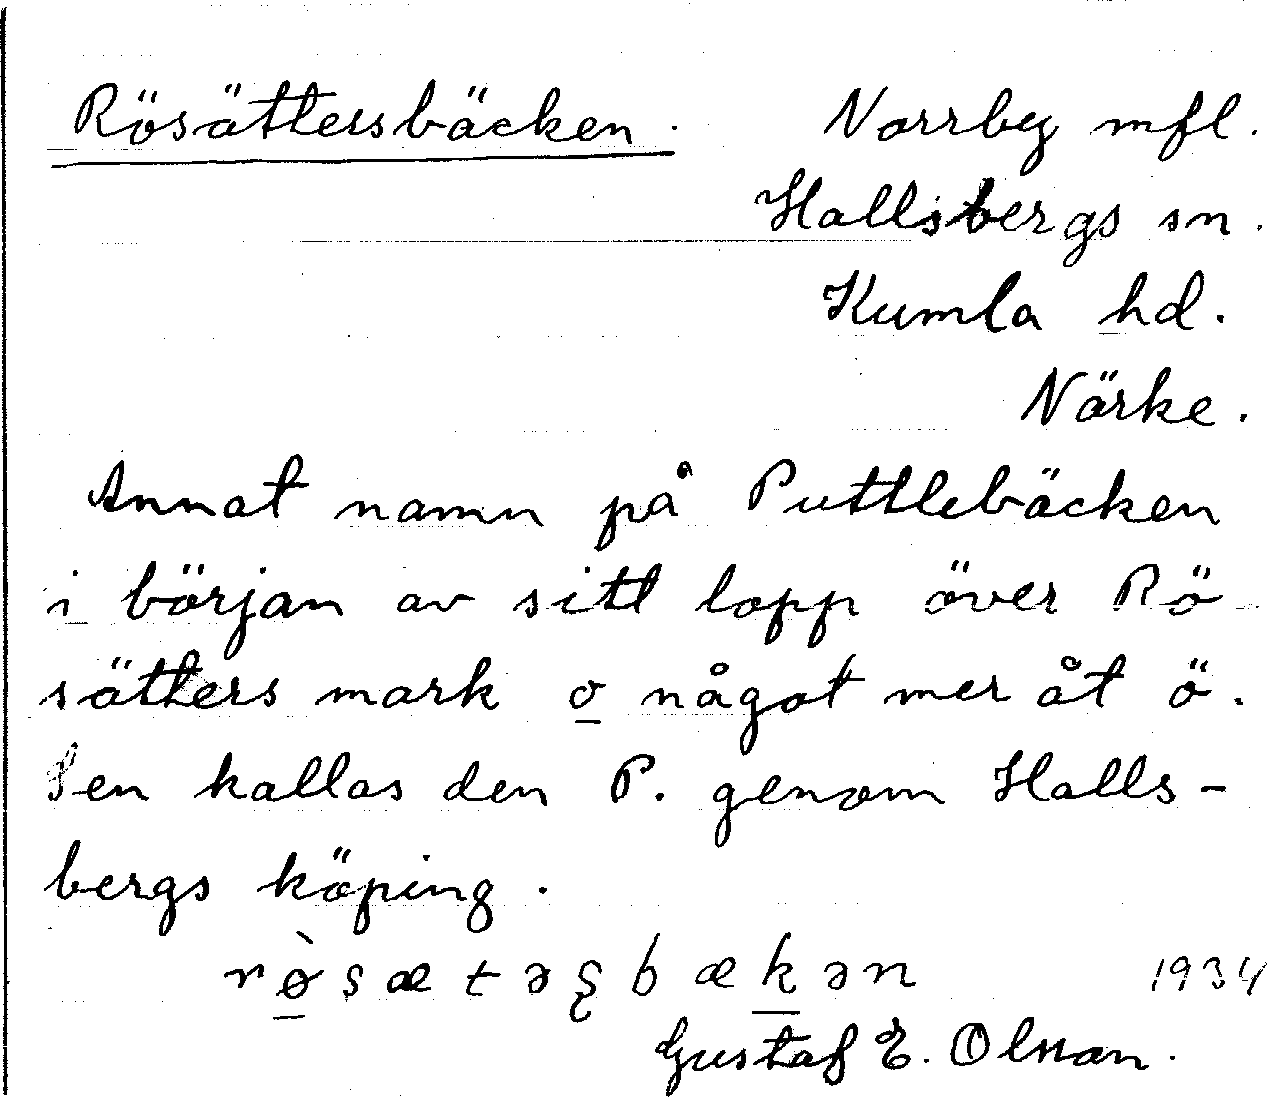 Rösättersbäcken. Norrby mfl.
Hallsbergs sn.
Kumla hd.
Närke.
Annat namn på Puttlebäcken
i början av sitt lopp över Rö-
sätters mark o något mer åt ö.
Sen kallas den P. genom Halls-
bergs köping.
1934
Gustaf E. Olsson.